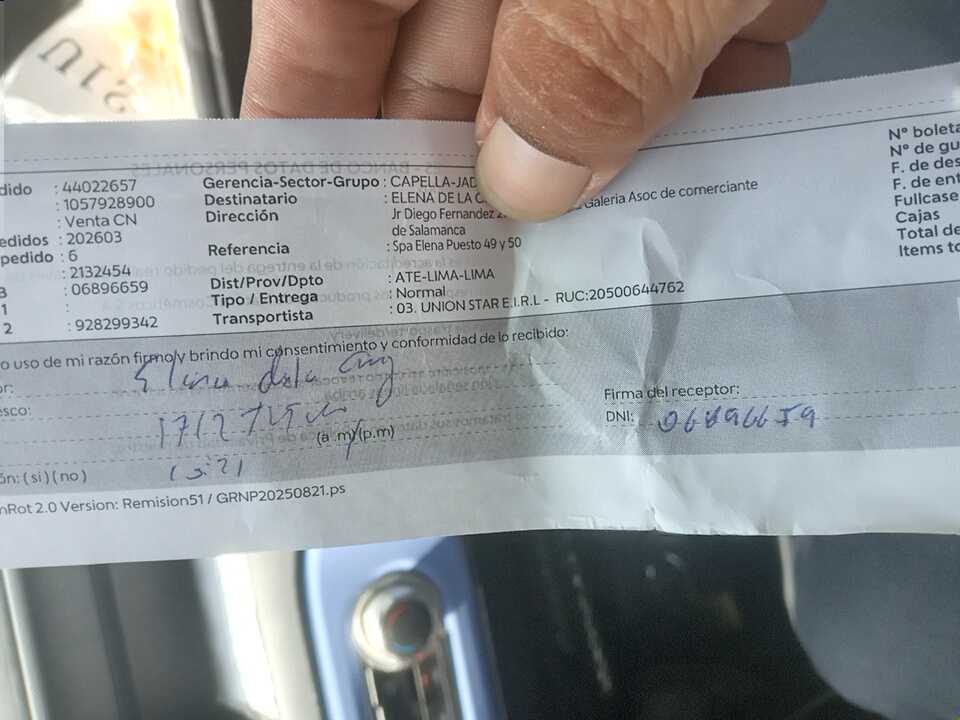 21U
5. BANCO DE DATOS PERSONALES
dido : 44022657
: 1057928900
: Venta CN
edidos : 202603
pedido : 6
: 2132454
: 06896659
1 :
2 : 928299342
Gerencia-Sector-Grupo : CAPELLA-JAD
Destinatario : ELENA DE LA C
Dirección : Jr Diego Fernandez 2 Galeria Asoc de comerciante
de Salamanca
Referencia : Spa Elena Puesto 49 y 50
Dist/Prov/Dpto : ATE-LIMA-LIMA
Tipo / Entrega : Normal
Transportista : 03. UNION STAR E.I.R.L - RUC:20500644762
N° boleta
N° de gu
F. de des
F. de ent
Fullcase
Cajas
Total de
Items to
o uso de mi razón firmo y brindo mi consentimiento y conformidad de lo recibido:
or: Elena de la Cruz
esco:
(a .m)/(p.m)
Firma del receptor:
DNI: 06896659
ón: (si)(no)
nRot 2.0 Version: Remision51 / GRNP20250821.ps